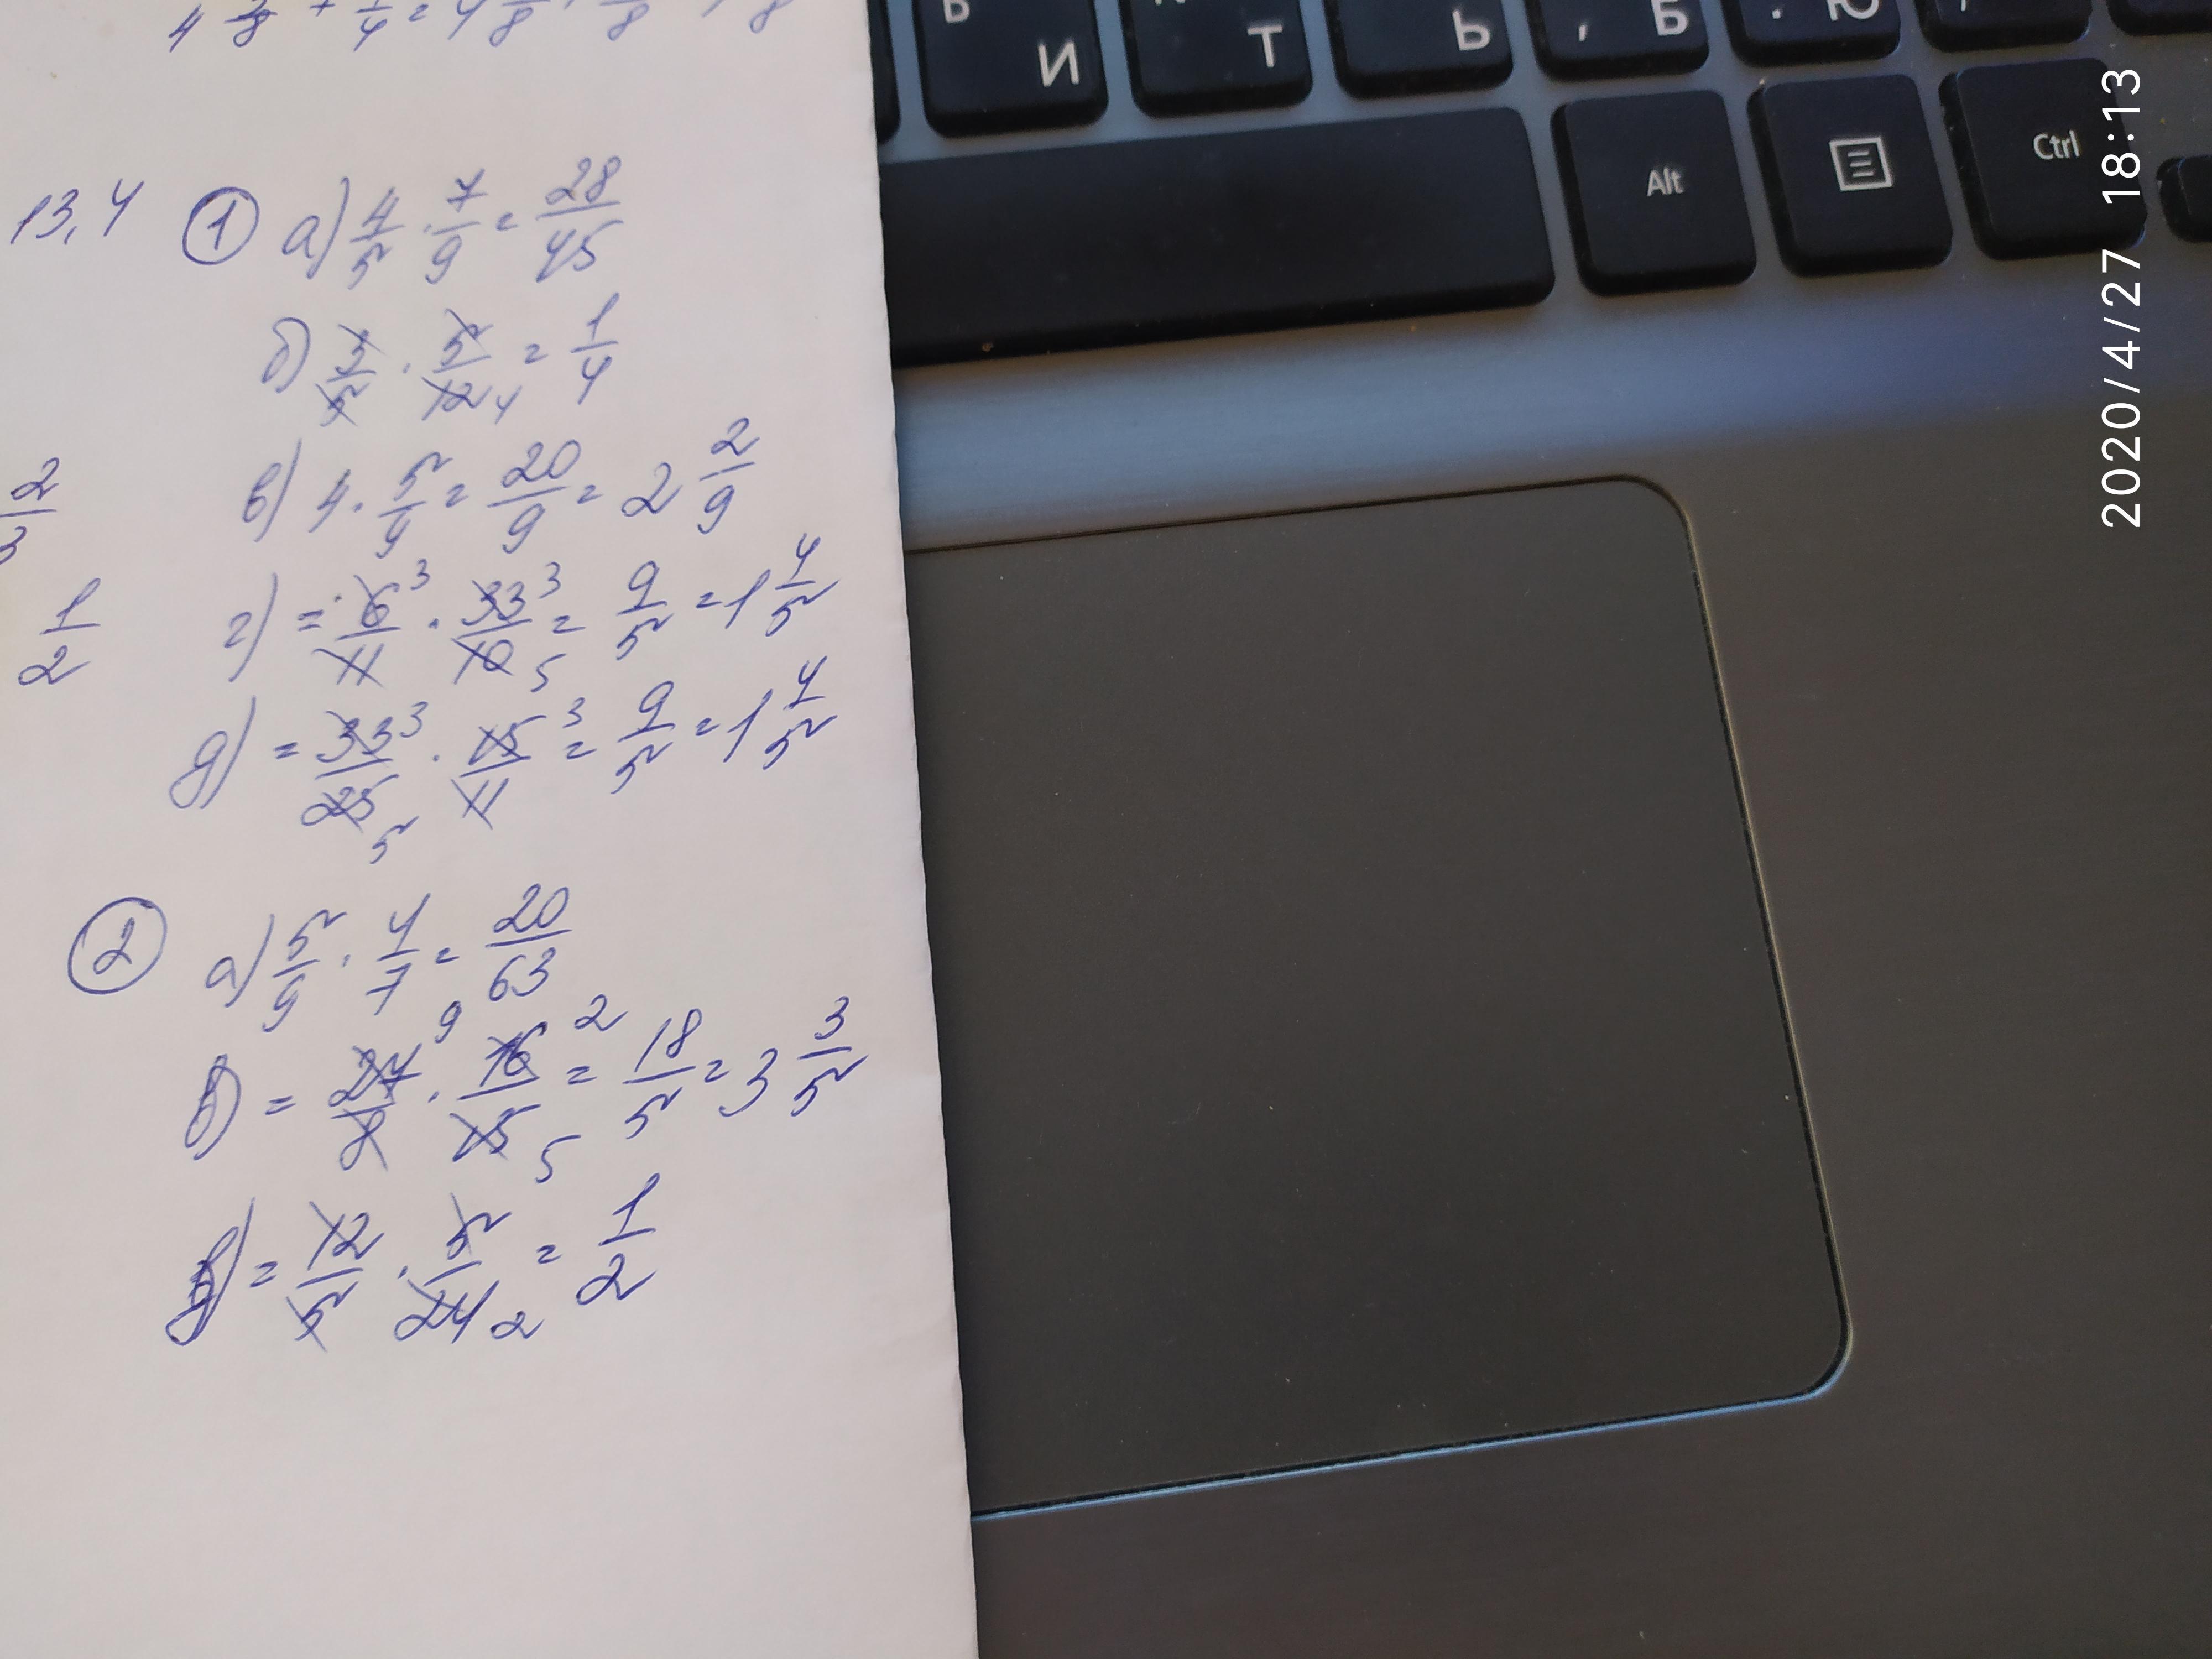 13,4 ① а) 4/5 · 7/9 = 28/45
б) 3/5 · 5/12 4 = 1/4
в) 4 · 5/9 = 20/9 = 2 2/9
г) = 6/11 3 · 33/10 3 5 = 9/5 = 1 4/5
д) = 33/25 3 5 · 15/11 3 = 9/5 = 1 4/5
② а) 5/9 · 4/7 = 20/63
б) = 27/8 9 · 16/15 2 5 = 18/5 = 3 3/5
в) = 12/5 · 5/24 2 = 1/2
2/3
1/2
И
Т
Ь
, Б
. Ю
Alt
Ctrl
2020/4/27 18:13